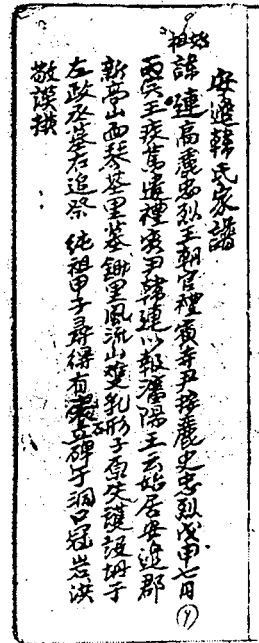 安邊韓氏家譜
始祖諱連高麗忠烈王朝官禮賓寺尹按麗史忠烈戊申七月
王疾篤遣禮賓尹韓連以報瀋陽王云始居安邊郡
新高山面琴基里墓鋤里風流山雙乳形子向失護設坍于
左政丞墓右追祭 純祖甲子尋得有立碑于洞口冠岩洪
敬謨撰